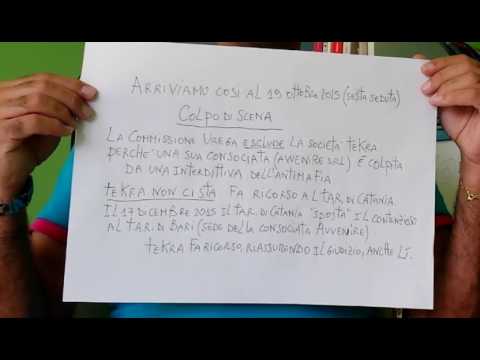 ARRIVIAMO COSÌ AL 19 OTTOBRE 2015 (SESTA SEDUTA)
COLPO DI SCENA
LA COMMISSIONE UREGA ESCLUDE LA SOCIETÀ TEKRA
PERCHE' UNA SUA CONSOCIATA (AVVENIRE SRL) È COLPITA
DA UNA INTERDITTIVA DELL'ANTIMAFIA
TEKRA NON CI STA FA RICORSO AL T.A.R. DI CATANIA
IL 17 DICEMBRE 2015 IL T.A.R. DI CATANIA "SPOSTA" IL CONTENZIOSO
AL T.A.R. DI BARI (SEDE DELLA CONSOCIATA AVVENIRE)
TEKRA FA RICORSO, RIASSUMENDO IL GIUDIZIO, ANCHE LÌ.